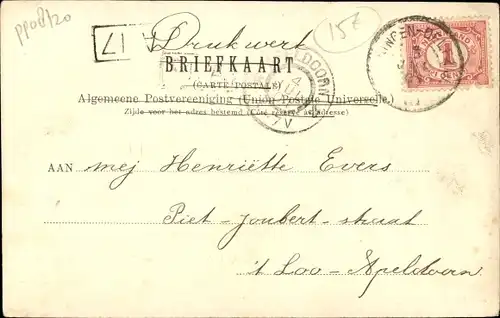 pp08120
15€
A 17
Drukwerk
BRIEFKAART
(CARTE POSTALE)
Algemeene Postvereeniging (Union Postale Universelle)
Zijde voor het adres bestemd (Côté réservé à l'adresse)
LDOORN
4
V
1
AAN mej Henriëtte Evers
Piet-Joubert-straat
't Loo-Apeldoorn